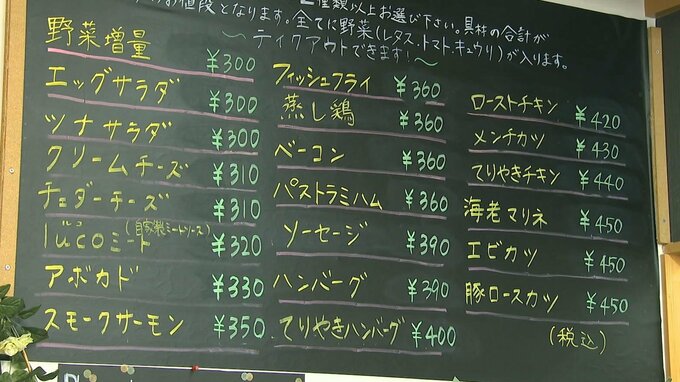 お値段となります。全てに野菜(レタス、トマト、キュウリ)が入ります。
種類以上お選び下さい。具材の合計が
〜テイクアウトできます!〜
野菜増量 ¥300
エッグサラダ ¥300
ツナサラダ ¥300
クリームチーズ ¥310
チェダーチーズ ¥310
lücoミート(自家製ミートソース) ¥320
アボカド ¥330
スモークサーモン ¥350
フィッシュフライ ¥360
蒸し鶏 ¥360
ベーコン ¥360
パストラミハム ¥360
ソーセージ ¥390
ハンバーグ ¥390
てりやきハンバーグ ¥400
ローストチキン ¥420
メンチカツ ¥430
てりやきチキン ¥440
海老マリネ ¥450
エビカツ ¥450
豚ロースカツ ¥450
(税込)